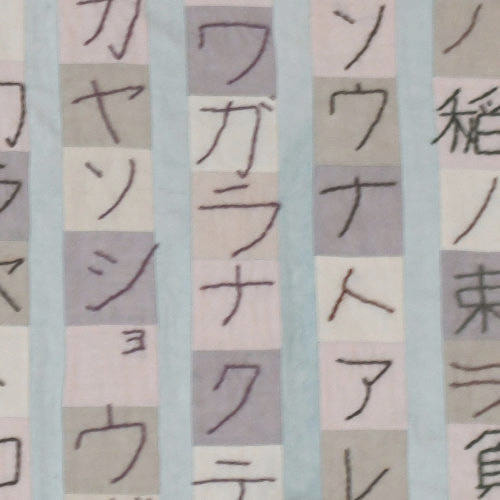 ノ稲ノ束ヲ負
ソウナ人アレ
ワガラナクテ
カヤソショウ
ラヤ